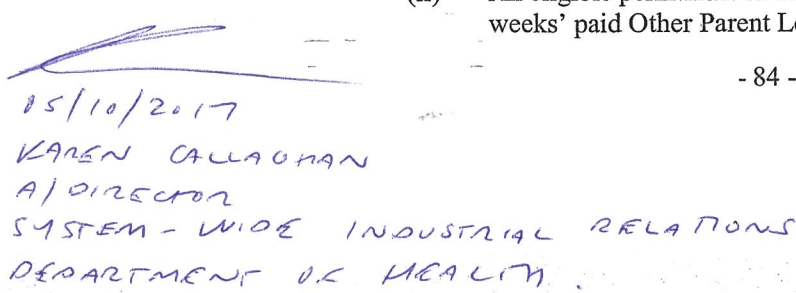 weeks' paid Other Parent
- 84 -
05/10/2017
KAREN CALLAGHAN
A/DIRECTOR
SYSTEM-WIDE INDUSTRIAL RELATIONS
DEPARTMENT OF HEALTH.